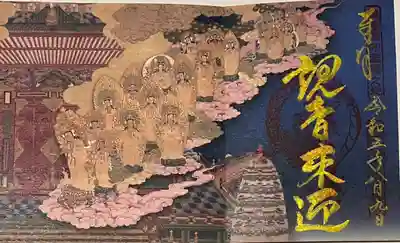 奉拝
令和五年八月九日
観音来迎